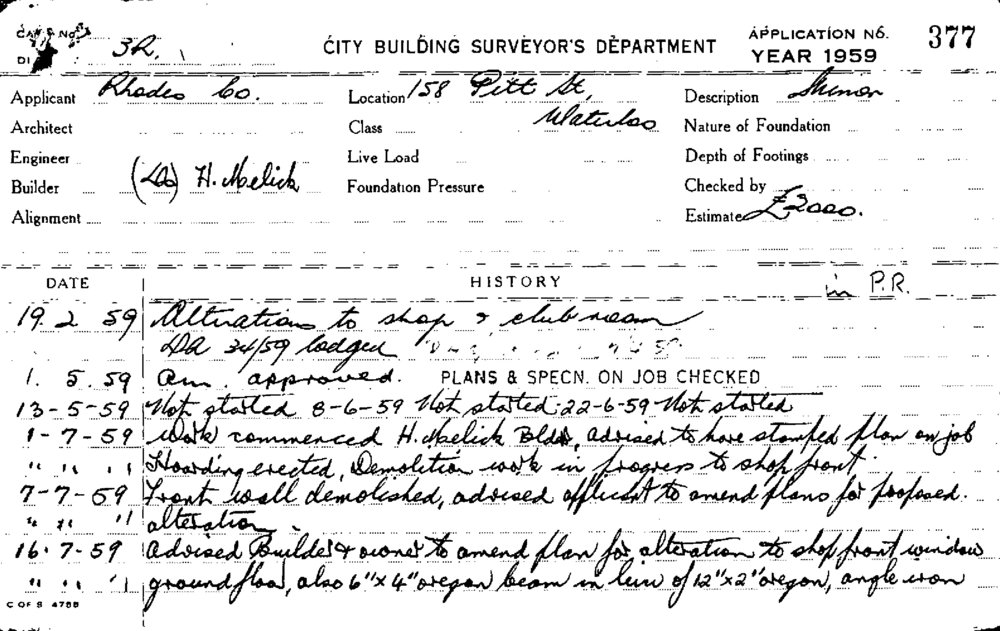 CARD No.
3R.
CITY BUILDING SURVEYOR'S DEPARTMENT
APPLICATION No. 377
YEAR 1959
DI
Applicant Rhodes Co.
Location 158 Pitt St,
Waterloo
Description
Architect
Class
Nature of Foundation
Engineer
Live Load
Depth of Footings
Builder (DA) H. Melick
Foundation Pressure
Checked by
Alignment
Estimate £2000.
DATE HISTORY in P.R.
19. 2 59 Alterations to shop & club room
DA 34/59 lodged
1. 5. 59 approved. PLANS & SPECN. ON JOB CHECKED
13-5-59 Not started 8-6-59 Not started 22-6-59 Not started
1-7-59 Work commenced H. Melick Bldr, advised to have stamped plan on job
" " " Hoarding erected, Demolition work in progress to shop front
7-7-59 Front wall demolished, advised applicant to amend plans for proposed.
" " " alteration.
16.7-59 Advised Builder & owner to amend plan for alteration to shop front window
" " " ground floor, also 6"x4" oregon beam in lieu of 12"x2" oregon, angle iron
C OF S 4788